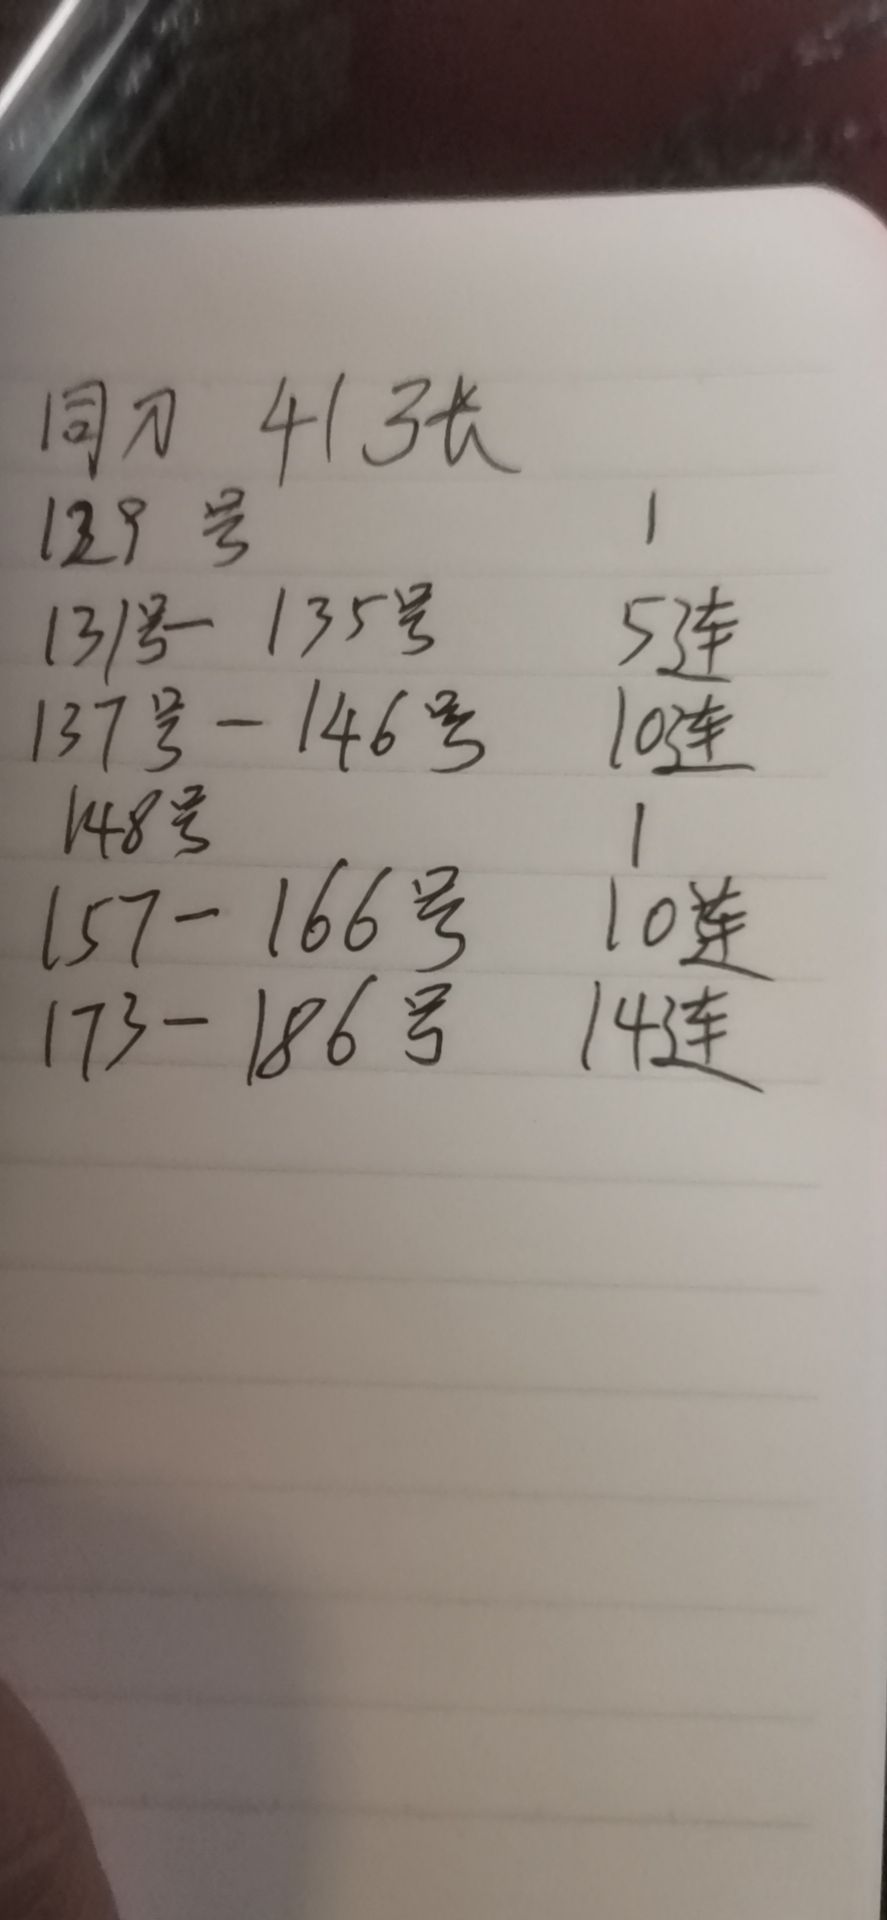 同刀 41张
129号 1
131号-135号 5连
137号-146号 10连
148号 1
157-166号 10连
173-186号 14连